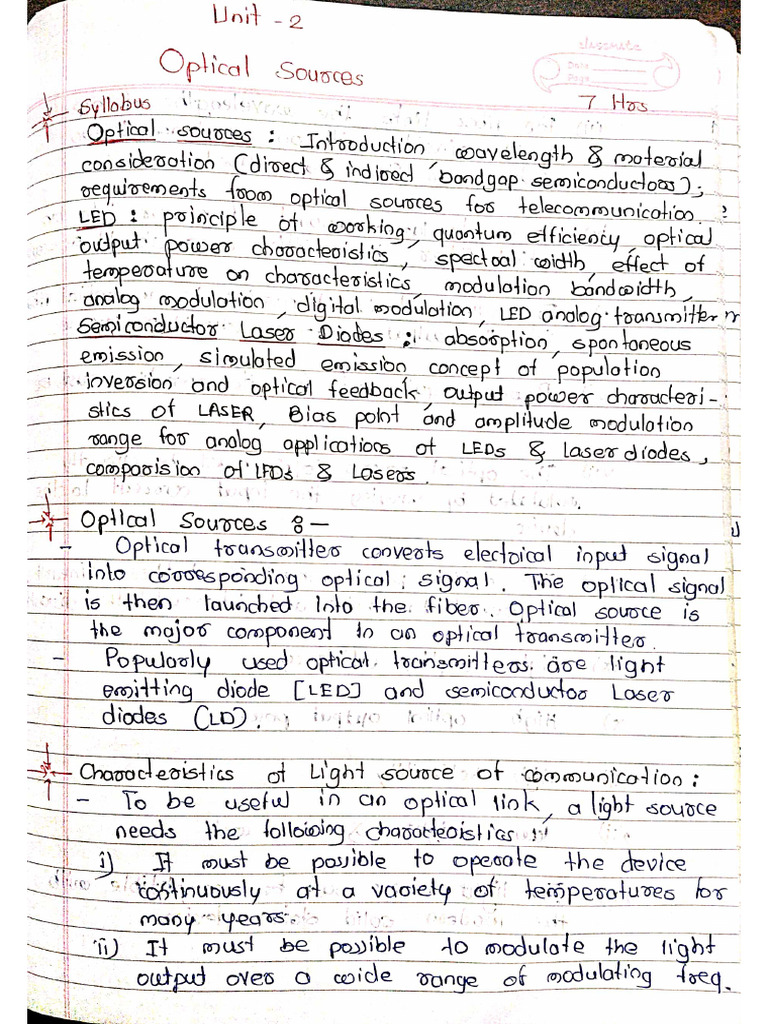 Unit - 2
Optical Sources
classmate
Date
Page
7 Hrs
Syllabus
Optical sources : Introduction wavelength & material
consideration (direct & indirect bandgap semiconductors);
requirements from optical sources for telecommunication.
LED : principle of working, quantum efficiency, optical
output power characteristics, spectral width, effect of
temperature on characteristics, modulation bandwidth,
analog modulation, digital modulation, LED analog transmitter
Semiconductor Laser Diodes : absorption, spontaneous
emission, simulated emission concept of population
inversion and optical feedback, output power characteri-
stics of LASER, Bias point and amplitude modulation
range for analog applications of LEDs & laser diodes,
comparision of LEDs & Lasers.
Optical Sources :-
- Optical transmitter converts electrical input signal
into corresponding optical signal. The optical signal
is then launched into the fiber. Optical source is
the major component in an optical transmitter.
- Popularly used optical transmitters are light
emitting diode [LED] and semiconductor Laser
diodes (LD).
Characteristics of Light source of communication :
- To be useful in an optical link, a light source
needs the following characteristics
i) It must be possible to operate the device
continuously at a variety of temperatures for
many years
ii) It must be possible to modulate the light
output over a wide range of modulating freq.